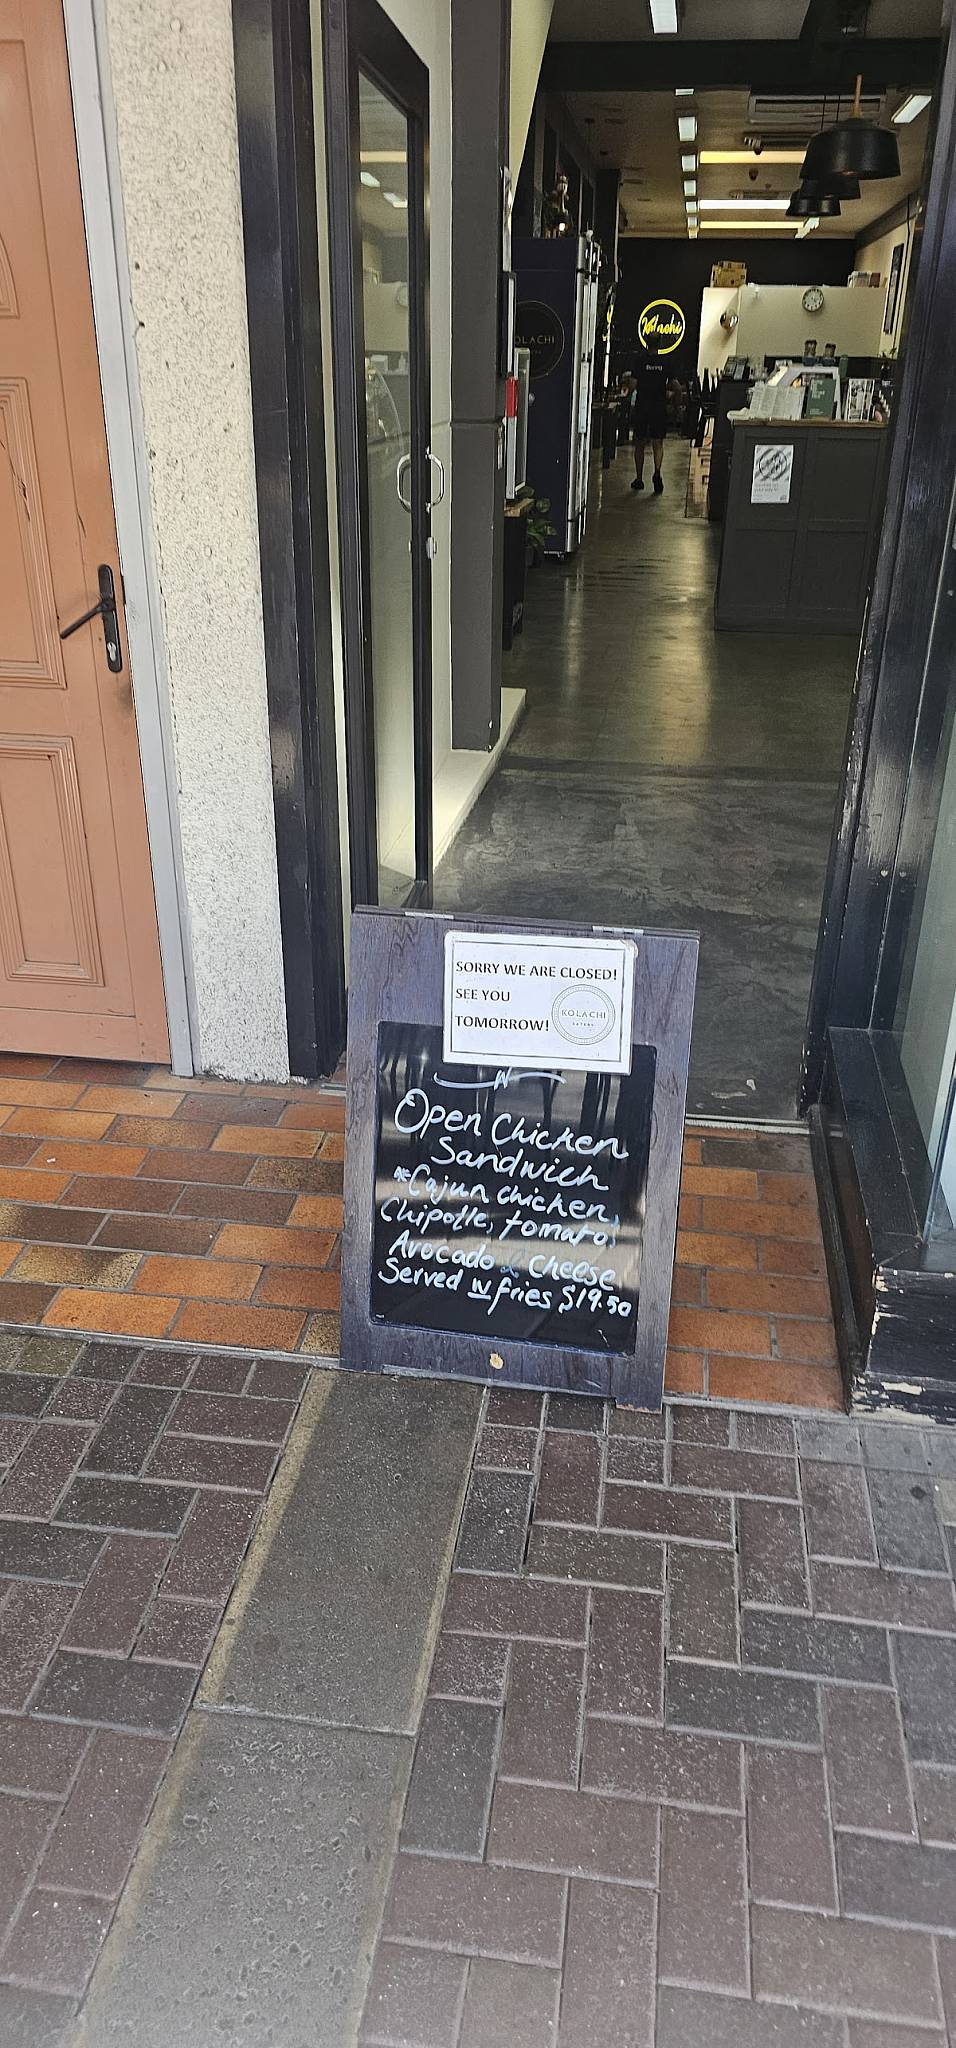 OLACHI
Kolachi
Boring
SORRY WE ARE CLOSED!
SEE YOU
TOMORROW!
KOLACHI
EATERY
Open Chicken
Sandwich
*Cajun chicken,
Chipotle, tomato,
Avocado & Cheese
Served w fries $19.50